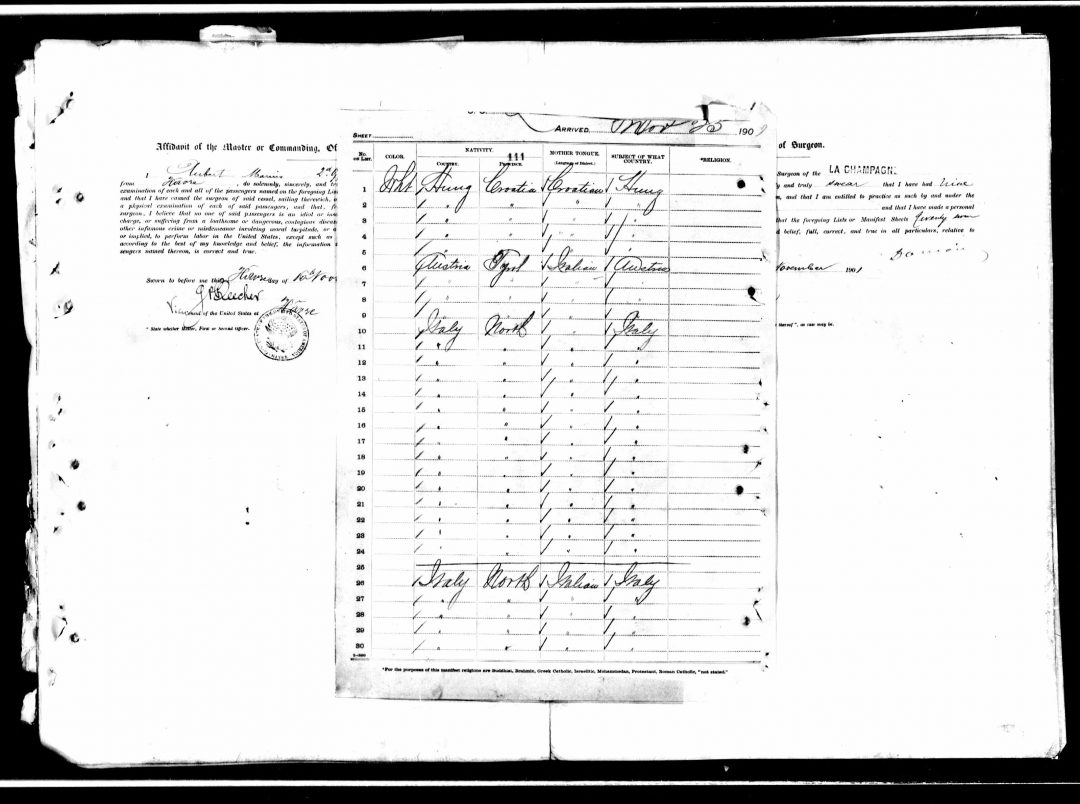 Affidavit of the Master or Commanding, Of
I Aubert Marius 2nd
from Havre , do solemnly, sincerely, and tr
examination of each and all of the passengers named on the foregoing Lis
and that I have caused the surgeon of said vessel, sailing therewith, o
a physical examination of each of said passengers, and that, f
surgeon, I believe that no one of said passengers is an idiot or in
charge, or suffering from a loathsome or dangerous, contagious disea
other infamous crime or misdemeanor involving moral turpitude, or a
or implied, to perform labor in the United States, except such
according to the best of my knowledge and belief, the information
sengers named therein, is correct and true.
Sworn to before me this day of
of the United States at Havre
* State whether Master, First or Second Officer.
SHEET
ARRIVED Nov 25 190
No. on List.
COLOR.
NATIVITY.
COUNTRY. PROVINCE.
111
MOTHER TONGUE.
(Language or Dialect.)
SUBJECT OF WHAT COUNTRY.
*RELIGION.
1 Wht Hung Croatia Croatian Hung
2 " " " "
3 " " " "
4 " " " "
5
6 Austria Tyrol Italian Austria
7 " " " "
8 " " " "
9
10 Italy North " Italy
11 " " " "
12 " " " "
13 " " " "
14 " " " "
15 " " " "
16 " " " "
17 " " " "
18 " " " "
19 " " " "
20 " " " "
21 " " " "
22 " " " "
23 " " " "
24 " " " "
25
26 Italy North Italian Italy
27 " " " "
28 " " " "
29 " " " "
30 " " " "
*For the purposes of this manifest religions are Buddhist, Brahmin, Greek Catholic, Israelitic, Mohammedan, Protestant, Roman Catholic, "not stated."
of Surgeon.
Surgeon of the LA CHAMPAGN
y and truly swear that I have had nine
n, and that I am entitled to practice as such by and under the
and that I have made a personal
that the foregoing Lists or Manifest Sheets
d belief, full, correct, and true in all particulars, relative to
November 1901
thereof", as case may be.